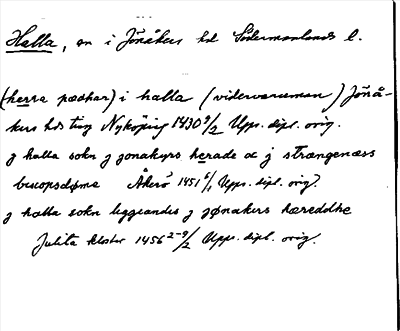 Halla, sn i Jönåkers hd Södermanlands l.
(herra pædhar) i halla (videvaruman) Jönå-
kers hds ting Nyköping 1430 9/2 Upps. dipl. orig.
j halla sokn j jonakyrs herade oc j strængenæss
biscopsdøme Åkerö 1451 6/1 Upps. dipl. orig.
j halla sokn liggiandes j jønakers hæreddhe
Julita kloster 1456 2-9/2 Upps. dipl. orig.